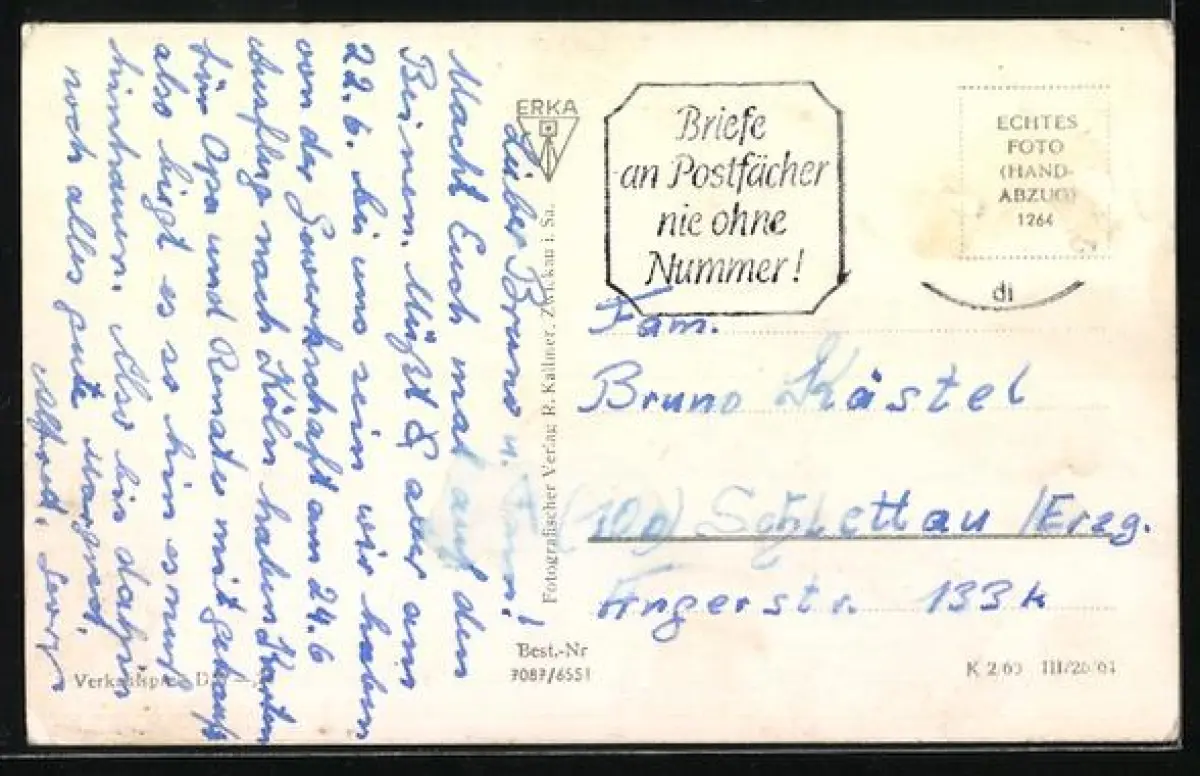 Lieber Bruno u.
Macht Euch mal auf den
Beinen. Müßt aber am
22.6. bei uns sein wir haben
von der Gewerkschaft am 24.6
Ausflug nach Köln haben Karten
für Opa und Renate mit gekauft
also liegt es so hin es muß
hinhauen. Also bis dahin
noch alles gute Margret,
Alfred, Georg
ERKA
Fotografischer Verlag R. Kallmer, Zwickau i. Sa.
Best.-Nr
7087/6551
Briefe
an Postfächer
nie ohne
Nummer!
ECHTES
FOTO
(HAND-
ABZUG)
1264
di
Fam.
Bruno Kästel
(10b) Schlettau /Erzg.
Angerstr. 133k
K 2/65 III/26/64